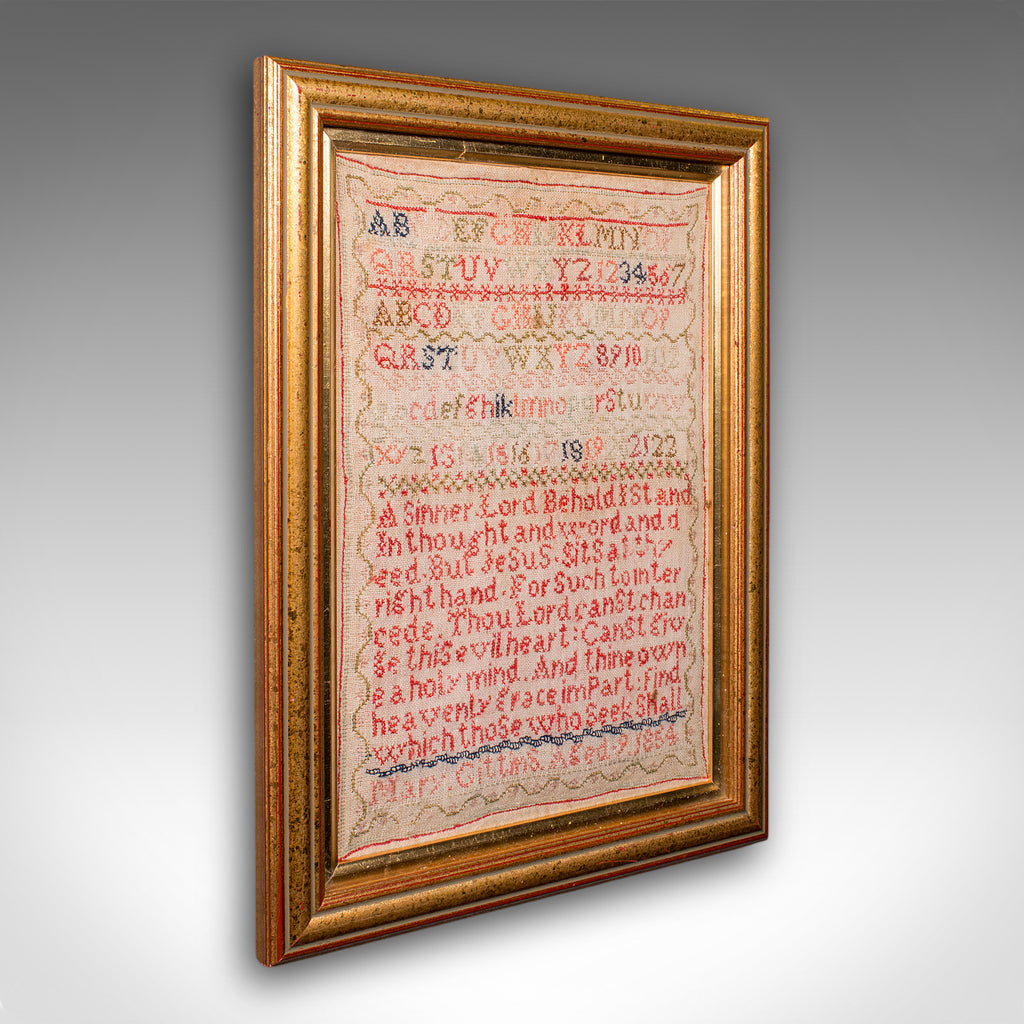 AB EFGH KLMNOP
QRSTUVWXYZ1234567
ABCD GHIKLMNOP
QRSTUVWXYZ8910
abcdefghiklmnopqrstuvw
xyz 13 14 15 16 17 18 19 2122
A Sinner Lord Behold I Stand
In thought and word and d
eed. But JeSuS. SitS at thy
right hand. For Such to inter
cede. Thou Lord canSt chan
ge thiS evil heart: CanSt giv
e a holy mind. And thine own
heavenly grace imPart: find
which thoSe who Seek Shall
Mary. Gittins. Aged. 9. 1864